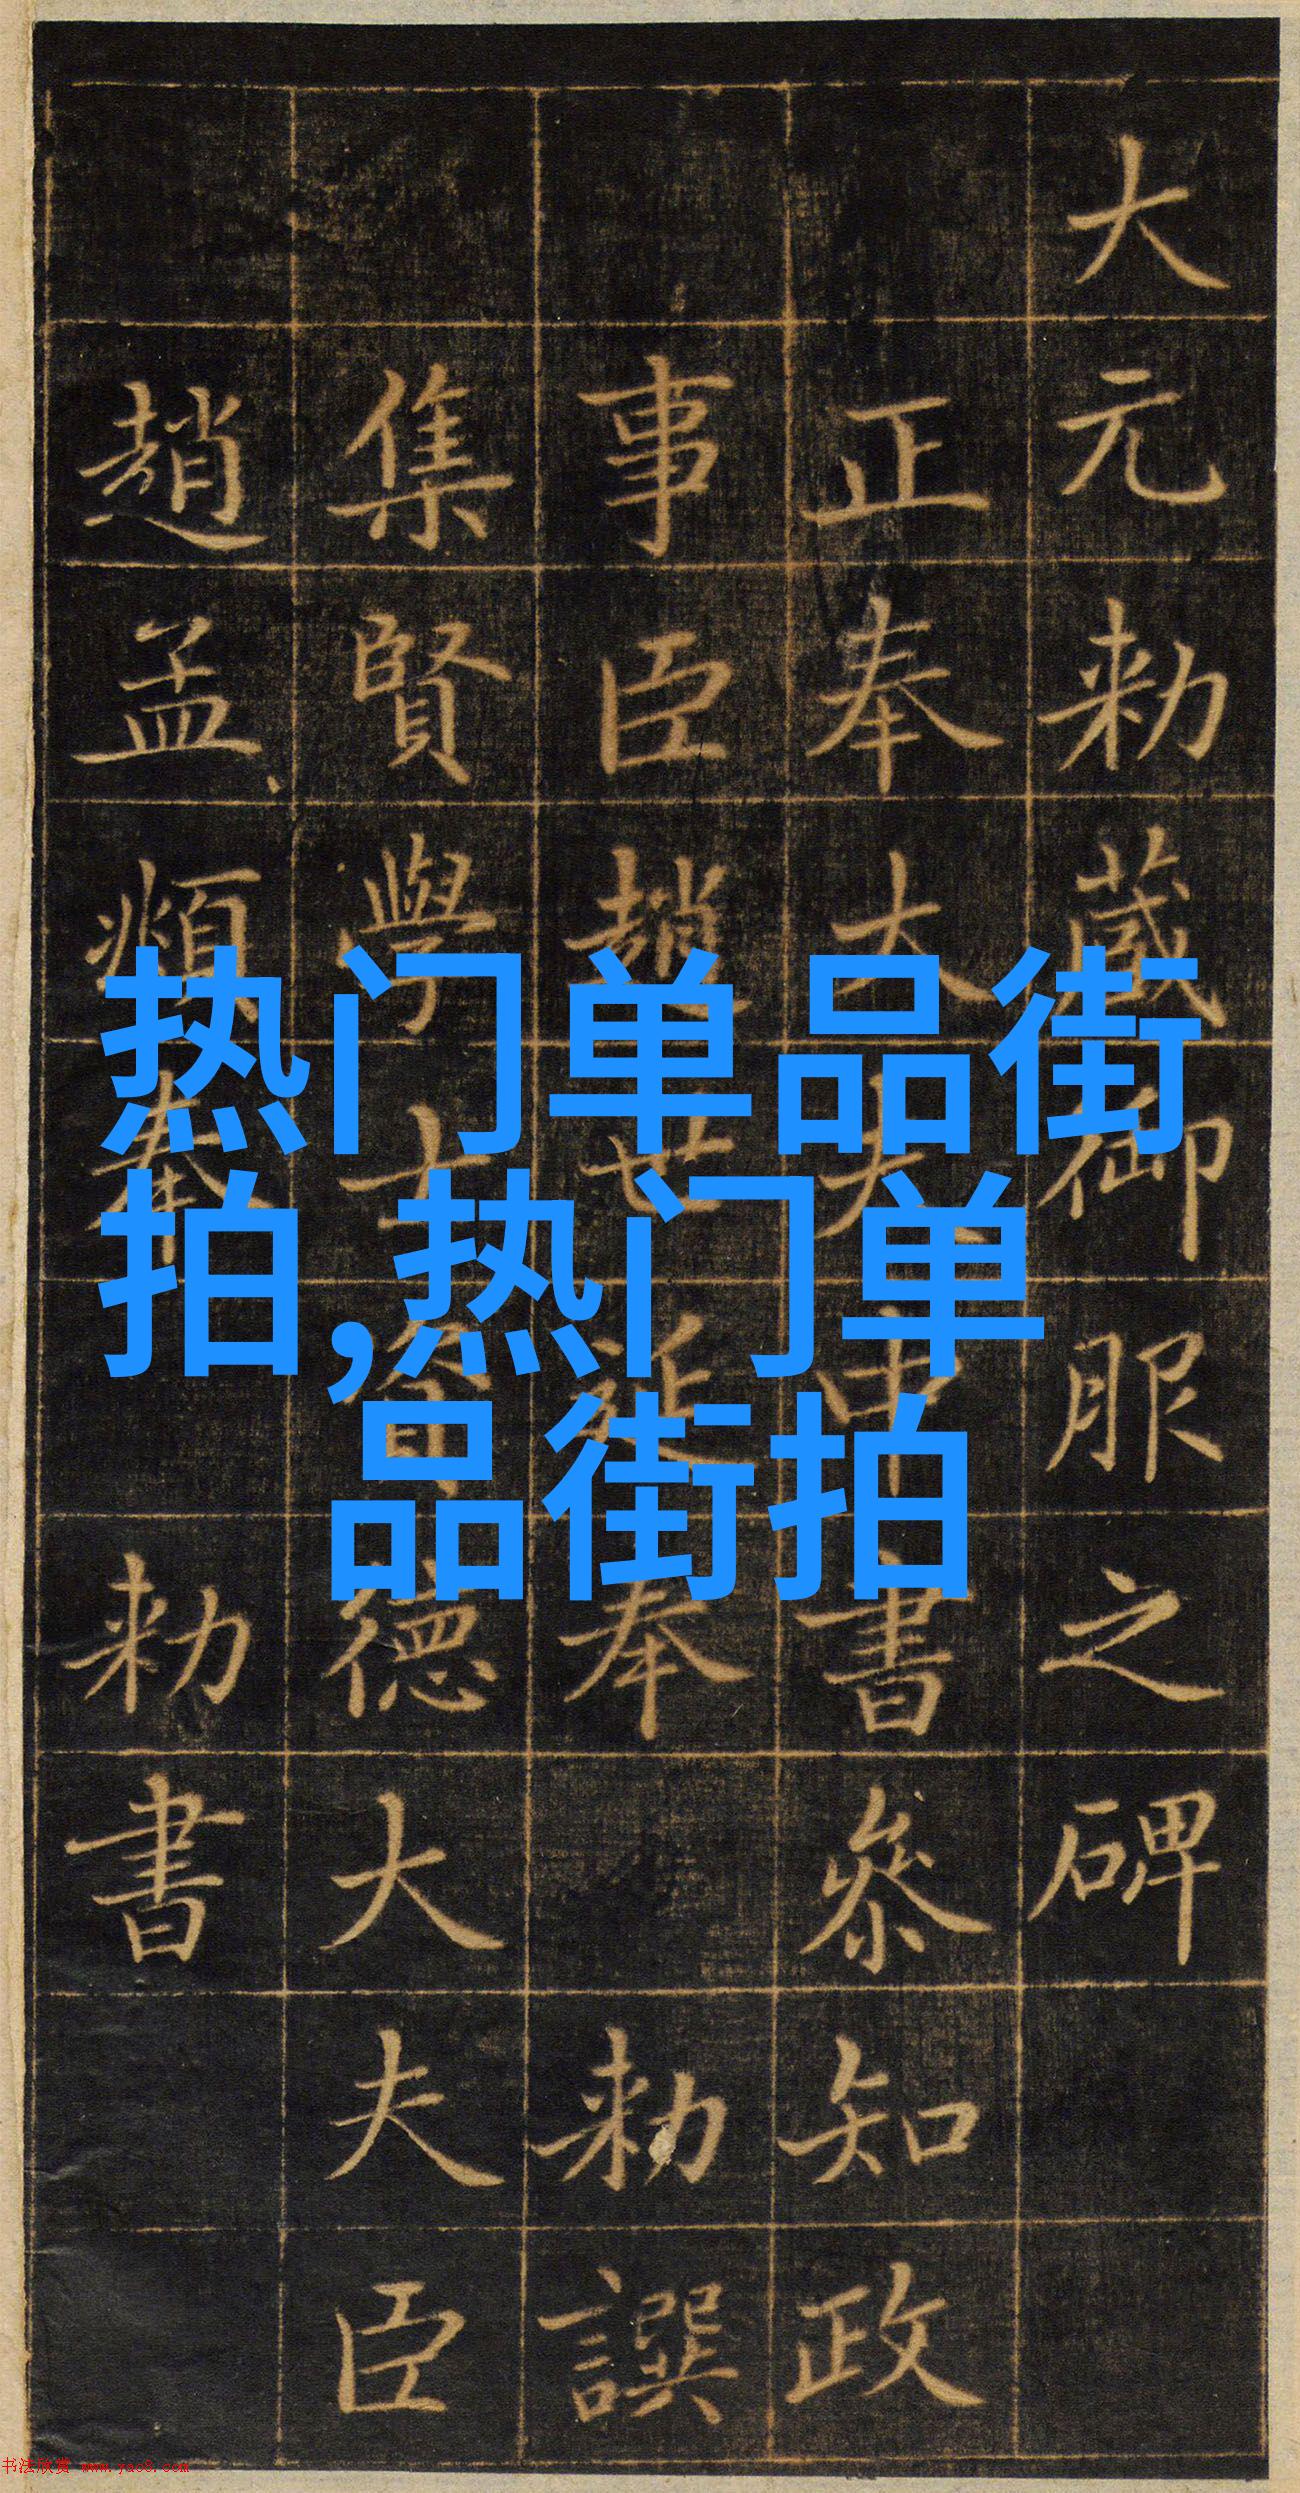 大元勑藏御服之碑
正奉大夫中書叅知政
事臣趙世延奉 勑譔
集賢學士資德大夫臣
趙孟頫奉 勑書
热门单品街
拍,热门单
品街拍
书法欣赏 www.yac8.com